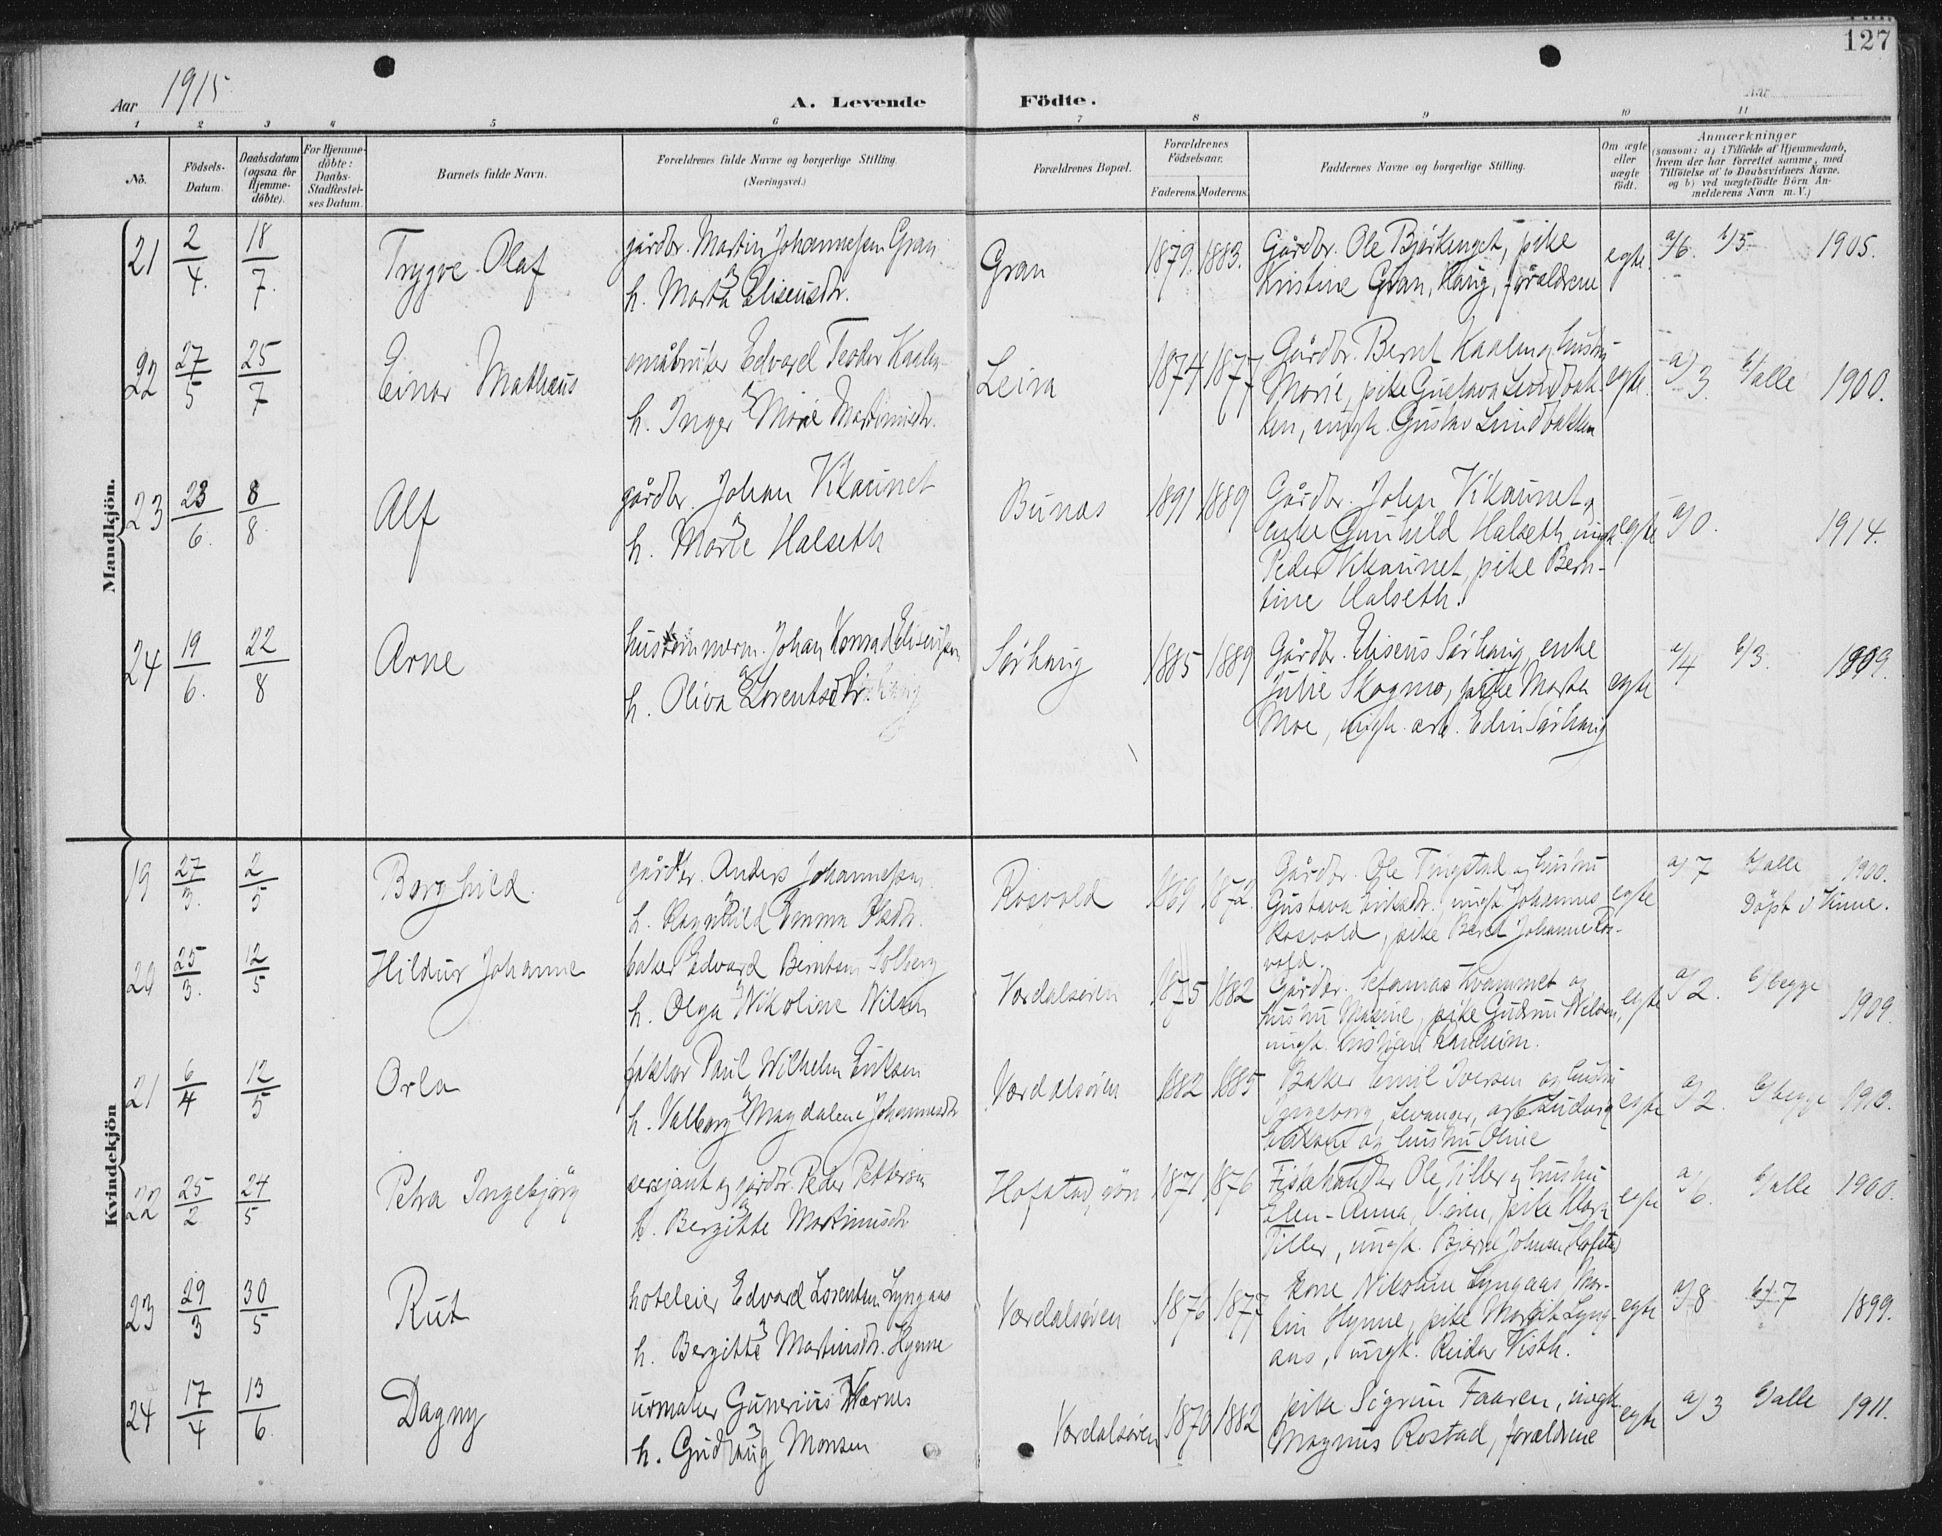 127
Aar 1915
A. Levende Födte.
1 2 3 4 5 6 7 8 9 10 11
No.
Födsels-
Datum.
Daabsdatum
(ogsaa for
Hjemme-
döbte).
For Hjemme-
döbte:
Daabs-
Stadfæstel-
ses Datum.
Barnets fulde Navn.
Forældrenes fulde Navne og borgerlige Stilling.
(Næringsvei.)
Forældrenes Bopæl.
Forældrenes
Födselsaar.
Faderens. Moderens.
Faddernes Navne og borgerlige Stilling.
Om ægte
eller
uægte
födt.
Anmærkninger
(saasom: a) i Tilfælde af Hjemmedaab,
hvem der har forrettet samme, med
Tilföielse af to Daabsvidners Navne,
og b) ved uægtefödte Börn An-
melderens Navn m. V.)
Mandkjön.
21 2/4. 18/7. Trygve Olaf
gårdbr. Martin Johannessen Gran
h. Marta Eliseusdtr.
Gran 1879. 1883.
Gårdbr. Ole Bjørkenget, pike
Kristine Gran, Haug, forældrene
egte. a/6. b/5 1905.
22 27/5 25/7 Einar Mathæus
småbruker Edvard Teodor
h. Inger Marie
Leira 1874 1877
Gårdbr. Bernt
Marie, pike Gustava Lundbak-
ken, ungk. Gustav Lundbakken
egte. a/3. b/alle 1900.
23 23/6. 8/8. Alf
gårdbr. Johan Vikaunet
h. Marie Halseth
Bunæs 1891 1889
Gårdbr. John Vikaunet,
enke Gunhild Halseth, ungk.
Peder Vikaunet, pike Bern-
tine Halseth.
egte a/0. 1914.
24 19/6. 22/8 Arne
hustømmerm. Johan Konrad Eliseussen
h. Oliva Lorentsdtr.
Sørhaug 1885 1889
Gårdbr. Eliseus Sørhaug, enke
Julie Skogmo, pike Marta
Moe, ungk. arb. Edin Sørhaug
egte a/4 b/3. 1909.
Kvindekjön
19 27/3. 2/5 Borghild.
gårdbr. Anders Johannessen
h. Ragnhild Emma Olsdtr.
Rosvold 1869 1872.
Gårdbr. Ole Tingstad og hustru
Gustava Eriksdtr., ungk. Johannes
Rosvold, pike Beret Johanne Ros-
vold.
egte a/7 b/alle 1900.
Døpt i Vinne.
20 25/3. 12/5 Hildur Johanne
baker Edvard Berntsen Solberg
h. Olga Nikoline Nilsen
Værdalsøren 1875 1882
Gårdbr. Sefanias Kvammet og
hustru Marie, pike Gudrun Nilsen,
ungk. Kristian Ranheim.
egte a/2. b/begge 1909.
21 6/4 12/5 Orla
faktor Paul Wilhelm Eriksen
h. Valborg Magdalene Johannesdtr
Værdalsøren 1882 1885
Baker Emil Iversen og hustru
Ingeborg, Levanger, arb. Ludvig
og hustru Oline
egte a/2. b/begge 1913.
22 25/2 24/5 Petra Ingebjørg
sersjant og gårdbr. Peder Pettersen
h. Bergitte Martinusdtr
Hofstad, øvre 1871 1876
Fiskehandler Ole Tiller og hustru
Elen-Anna, Ø ren, pike Klara
Tiller, ungk. Bjarne Johnsen Hofstad
egte a/6. b/alle 1900.
23 29/3 30/5 Rut
hoteleier Edvard Lorentsen Lyngaas
h. Bergitte Martinsdtr. Hynne
Værdalsøren 1876 1877
kone Nikoline Lyngaas, Mar-
tin Hynne, pike Margit Lyng-
aas, ungk. Reidar Visth.
egte a/8 b/7 1899.
24 17/4 13/6 Dagny
urmaker Gunerius Værnes
h. Gudlaug Monsen
Værdalsøren 1870 1882
pike Sigrun Faaren, ungk.
Magnus Rostad, forældrene
egte a/3 b/alle 1911.